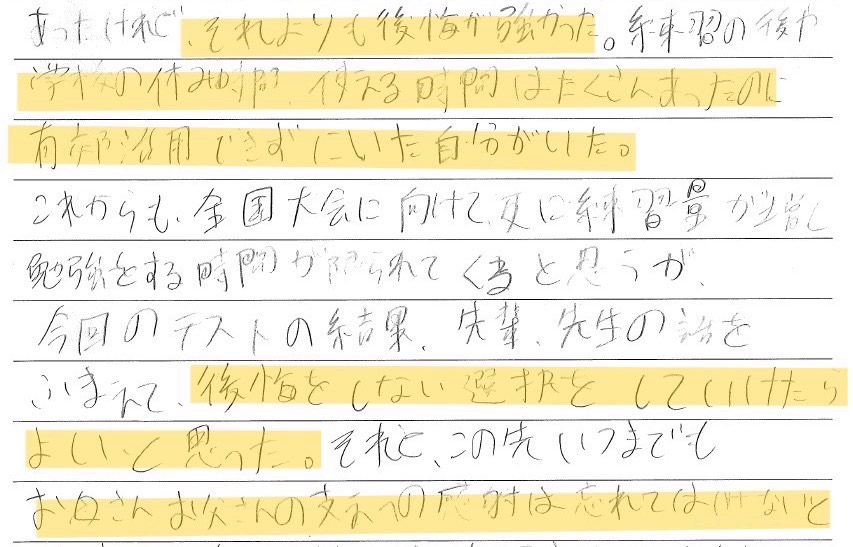 あったけれど、それよりも後悔が強かった。練習の後や
学校の休み時間、使える時間はたくさんあったのに
有効活用できずにいた自分がいた。
これからも、全国大会に向けて、更に練習量が増し
勉強をする時間が限られてくると思うが、
今回のテストの結果、先輩、先生の話を
ふまえて、後悔をしない選択をしていけたら
よいと思った。それと、この先いつまでも
お母さんお父さんの支えへの感謝は忘れてはいけないと